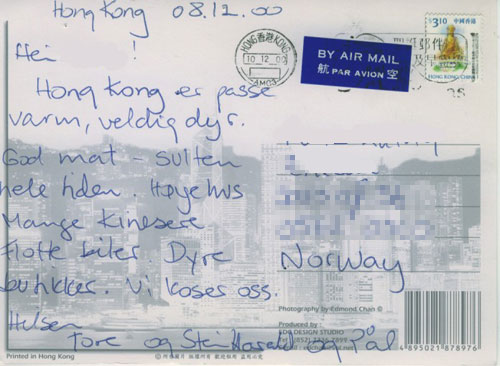 Hong Kong 08.12.00
Hei !
Hong Kong er passe
varm, veldig dyr.
God mat - sulten
hele tiden. Høyehus
Mange kinesere
Flotte biler. Dyre
butikker. Vi koser oss.
Hilsen
Tore og Stein Harald og Pål
HONG KONG 香港
10.12.00
BY AIR MAIL
航 PAR AVION 空
$3.10
中國香港
HONG KONG CHINA
Norway
Photography by Edmond Chan ©
Produced by :
DESIGN STUDIO
4 895021 878976
Printed in Hong Kong
版權所有